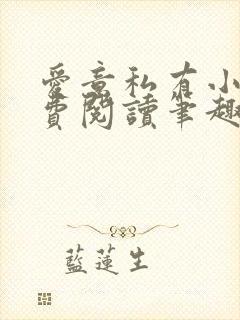 愛意私有小
費閱讀筆趣
藍蓮生